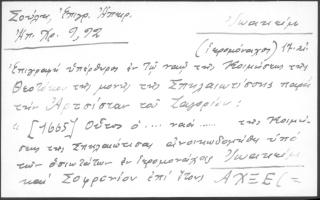 Σούλης, Ἐπιγρ. Ἠπειρ. Ἰωακεὶμ
Ἠπ. Χρ. 9, 92
(Ἱερομόναχος) 17. αἰ
Ἐπιγραφὴ ὑπέρθυρος ἐν τῷ ναῷ τῆς Κοιμήσεως τῆς
Θεοτόκου τῆς μονῆς τῆς Σπηλαιωτίσσης παρὰ
τὴν Ἀρτσίσταν τοῦ Ζαγορίου:
" [1665] Οὗτος ὁ .... ναὸς .... τῆς Κοιμή-
σεως τῆς Σπηλαιώτισας ἀνοικωδομήθη ὑπὸ
τῶν ὁσιωτάτων ἐν ἱερομονάχοις Ἰωακεὶμ
καὶ Σοφρονίου ἐπὶ ἔτους ΑΧΞΕ (=